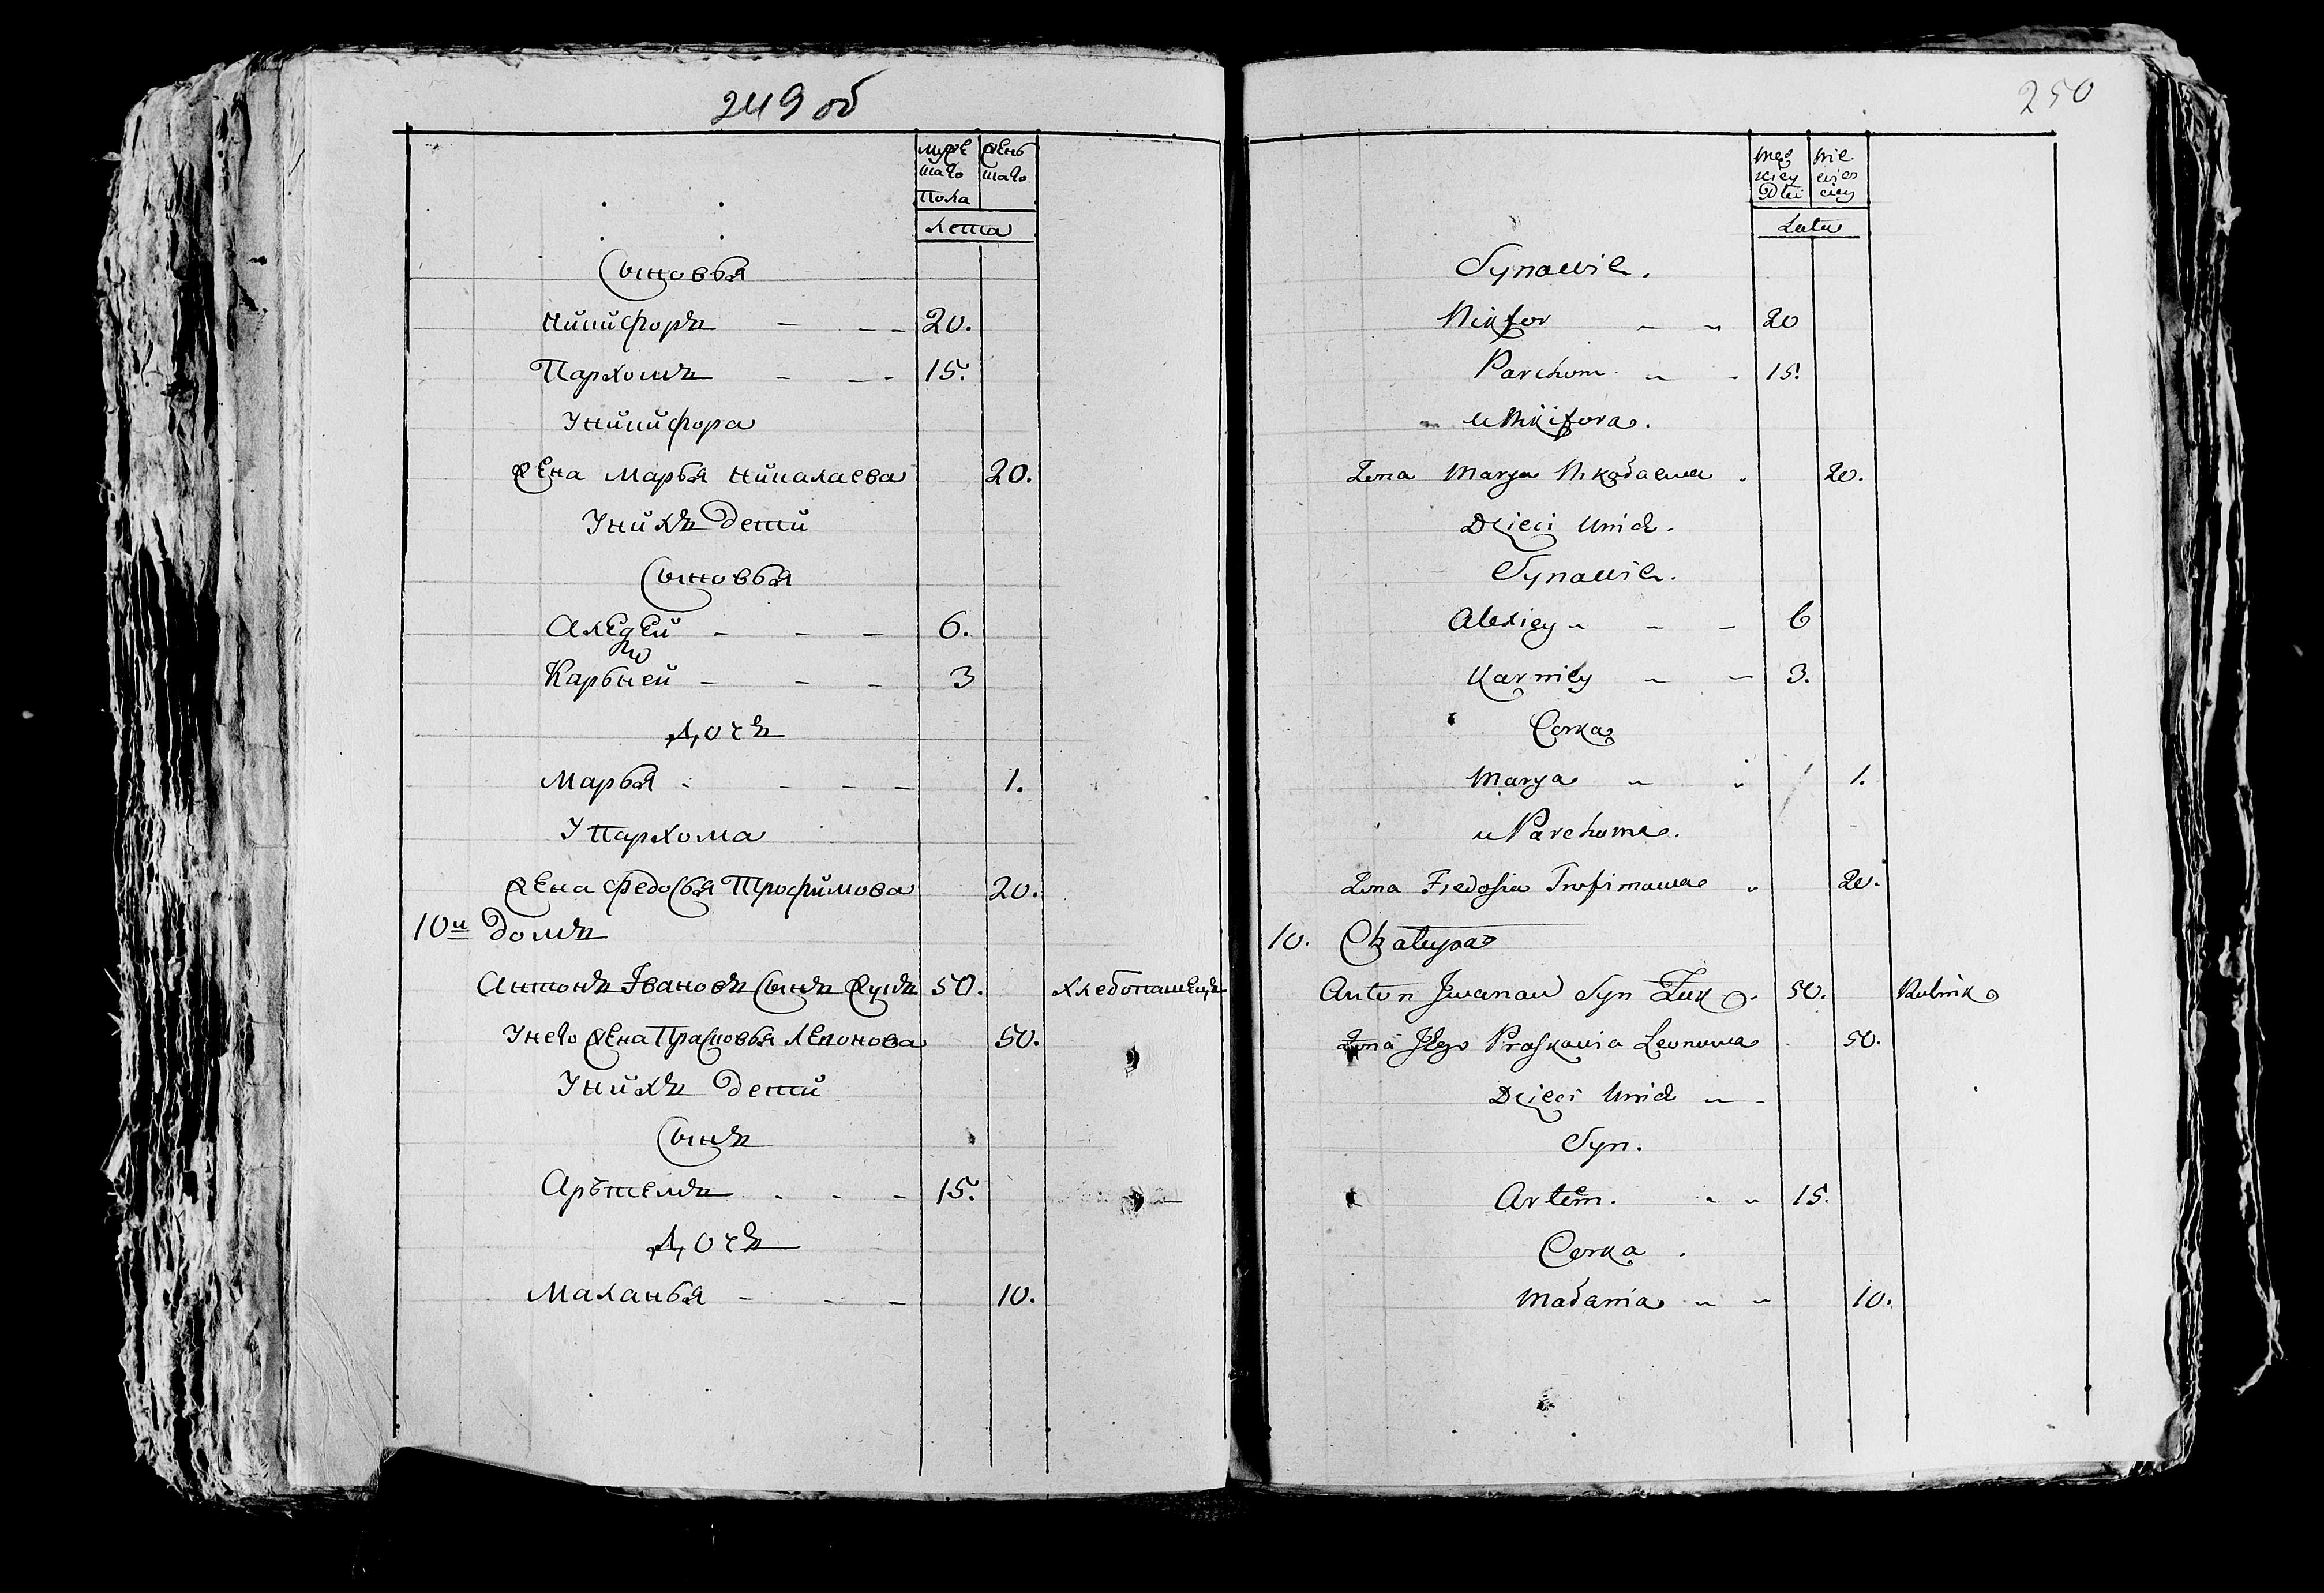 249 об
муже женъ
скаго скаго
пола
лета
Сыновья
Никифоръ 20.
Пархомъ 15.
У Никифора
жена Марья Николаева 20.
У нихъ дети
Сыновья
Алезей 6.
Карьней 3
Дочъ
Марья 1.
У Пархома
жена Федосья Трофимова 20.
10й домъ
Антонъ Ивановъ сынъ Жукъ 50. хлебопашецъ
У него жена Прасковья Леонова 50.
У нихъ дети
Сынъ
Арътемъ 15.
Дочъ
Маланья 10.
250
męz
kiey
Płci
Lata
Synawie.
Nikifor 20
Parchom 15.
u Nikifora.
Żona Marya Nikołaewa 20.
Dzieci u nich.
Synawie.
Alexiey 6
Karniey 3.
Corka
Marya 1.
u Parchoma.
Żona Fiedosia Trofimawa 20.
10. Chałupa
Anton Jwanaw Syn Żuk 50. Rolnik
Żona Jego Praskawia Leonawa 50.
Dzieci u nich
Syn.
Artem. 15.
Corka
Małania 10.